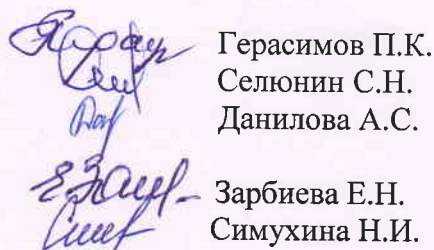 Герасимов П.К.
Селюнин С.Н.
Данилова А.С.
Зарбиева Е.Н.
Симухина Н.И.